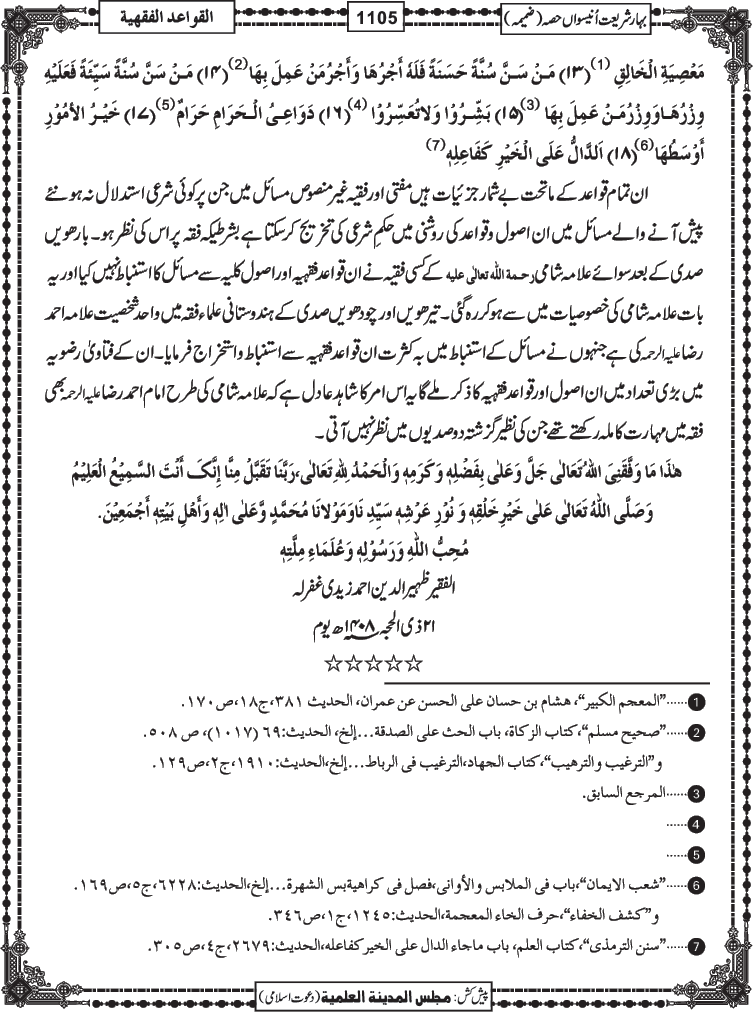 بہارِ شریعت اُنیسواں حصہ (ضمیمہ)
1105
القواعد الفقهية
مَعْصِيَةِ الْخَالِقِ (1) (۱۳) مَنْ سَنَّ سُنَّةً حَسَنَةً فَلَهُ أَجْرُهَا وَأَجْرُ مَنْ عَمِلَ بِهَا (2) (۱۴) مَنْ سَنَّ سُنَّةً سَيِّئَةً فَعَلَيْهِ
وِزْرُهَا وَوِزْرُ مَنْ عَمِلَ بِهَا (3) (۱۵) بَشِّرُوْا وَلَا تُعَسِّرُوْا (4) (۱۶) دَوَاعِيُ الْحَرَامِ حَرَامٌ (5) (۱۷) خَيْرُ الْأُمُوْرِ
أَوْسَطُهَا (6) (۱۸) اَلدَّالُّ عَلَى الْخَيْرِ كَفَاعِلِهٖ (7)
ان تمام قواعد کے ماتحت بے شمار جزئیات ہیں مفتی اور فقیہ غیر منصوص مسائل میں جن پر کوئی شرعی استدلال نہ ہو نئے
پیش آنے والے مسائل میں ان اصول و قواعد کی روشنی میں حکمِ شرعی کی تخریج کر سکتا ہے بشرطیکہ فقہ پر اس کی نظر ہو۔ بارھویں
صدی کے بعد سوائے علامہ شامی رحمة الله تعالى عليه کے کسی فقیہ نے ان قواعد فقہیہ اور اصول کلیہ سے مسائل کا استنباط نہیں کیا اور یہ
بات علامہ شامی کی خصوصیات میں سے ہو کر رہ گئی۔ تیرھویں اور چودھویں صدی کے ہندوستانی علماءِ فقہ میں واحد شخصیت علامہ احمد
رضا علیہ الرحمہ کی ہے جنہوں نے مسائل کے استنباط میں بہ کثرت ان قواعد فقہیہ سے استنباط و استخراج فرمایا۔ ان کے فتاویٰ رضویہ
میں بڑی تعداد میں ان اصول اور قواعد فقہیہ کا ذکر ملے گا یہ اس امر کا شاہد عادل ہے کہ علامہ شامی کی طرح امام احمد رضا علیہ الرحمہ بھی
فقہ میں مہارت کاملہ رکھتے تھے جن کی نظیر گزشتہ دو صدیوں میں نظر نہیں آتی۔
هٰذَا مَا وَفَّقَنِيَ اللهُ تَعَالٰى جَلَّ وَعَلٰى بِفَضْلِهٖ وَكَرَمِهٖ وَالْحَمْدُ لِلّٰهِ تَعَالٰى، رَبَّنَا تَقَبَّلْ مِنَّا إِنَّكَ أَنْتَ السَّمِيْعُ الْعَلِيْمُ
وَصَلَّى اللّٰهُ تَعَالٰى عَلٰى خَيْرِ خَلْقِهٖ وَ نُوْرِ عَرْشِهٖ سَيِّدِنَا وَمَوْلَانَا مُحَمَّدٍ وَّعَلٰى اٰلِهٖ وَأَهْلِ بَيْتِهٖ أَجْمَعِيْنَ.
مُحِبُّ اللّٰهِ وَرَسُوْلِهٖ وَعُلَمَاءِ مِلَّتِهٖ
الفقیر ظہیر الدین احمد زیدی غفر لہ
۲۱ ذی الحجہ ۱۴۰۸ھ یوم
☆☆☆☆☆
1 ......"المعجم الكبير"، هشام بن حسان على الحسن عن عمران، الحديث ۳۸۱، ج۱۸، ص۱۷۰.
2 ......"صحيح مسلم"، كتاب الزكاة، باب الحث على الصدقة...إلخ، الحديث: ۶۹ (۱۰۱۷)، ص ۵۰۸.
و"الترغيب والترهيب"، كتاب الجهاد، الترغيب فى الرباط...إلخ، الحديث: ۱۹۱۰، ج۲، ص۱۲۹.
3 ......المرجع السابق.
4 ......
5 ......
6 ......"شعب الايمان"، باب فى الملابس والأوانى، فصل فى كراهية لبس الشهرة...إلخ، الحديث: ۶۲۲۸، ج۵، ص۱۶۹.
و"كشف الخفاء"، حرف الخاء المعجمة، الحديث: ۱۲۴۵، ج۱، ص۳۴۶.
7 ......"سنن الترمذى"، كتاب العلم، باب ماجاء الدال على الخير كفاعله، الحديث: ۲۶۷۹، ج۴، ص۳۰۵.
پیش کش: مجلس المدينة العلمية (دعوت اسلامی)